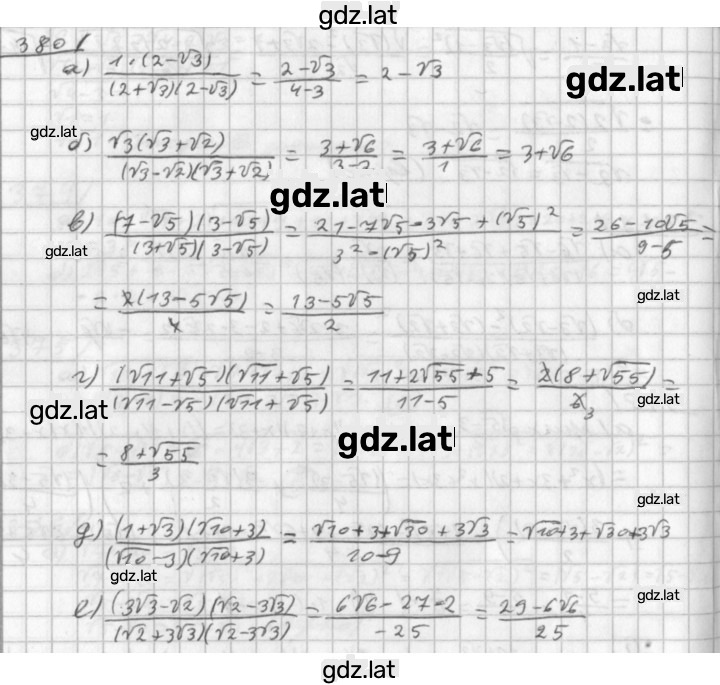 gdz.lat
380
а) 1·(2-√3)/((2+√3)(2-√3)) = (2-√3)/(4-3) = 2-√3
gdz.lat
gdz.lat
б) √3(√3+√2)/((√3-√2)(√3+√2)) = (3+√6)/(3-2) = (3+√6)/1 = 3+√6
gdz.lat
в) (7-√5)(3-√5)/((3+√5)(3-√5)) = (21-7√5-3√5+(√5)²)/(3²-(√5)²) = (26-10√5)/(9-5) =
gdz.lat
= 2(13-5√5)/4 = (13-5√5)/2
gdz.lat
г) (√11+√5)(√11+√5)/((√11-√5)(√11+√5)) = (11+2√55+5)/(11-5) = 2(8+√55)/6 3 =
gdz.lat
gdz.lat
gdz.lat
= (8+√55)/3
gdz.lat
д) (1+√3)(√10+3)/((√10-3)(√10+3)) = (√10+3+√30+3√3)/(10-9) = √10+3+√30+3√3
gdz.lat
gdz.lat
е) (3√3-√2)(√2-3√3)/((√2+3√3)(√2-3√3)) = (6√6-27-2)/(-25) = (29-6√6)/25
gdz.lat